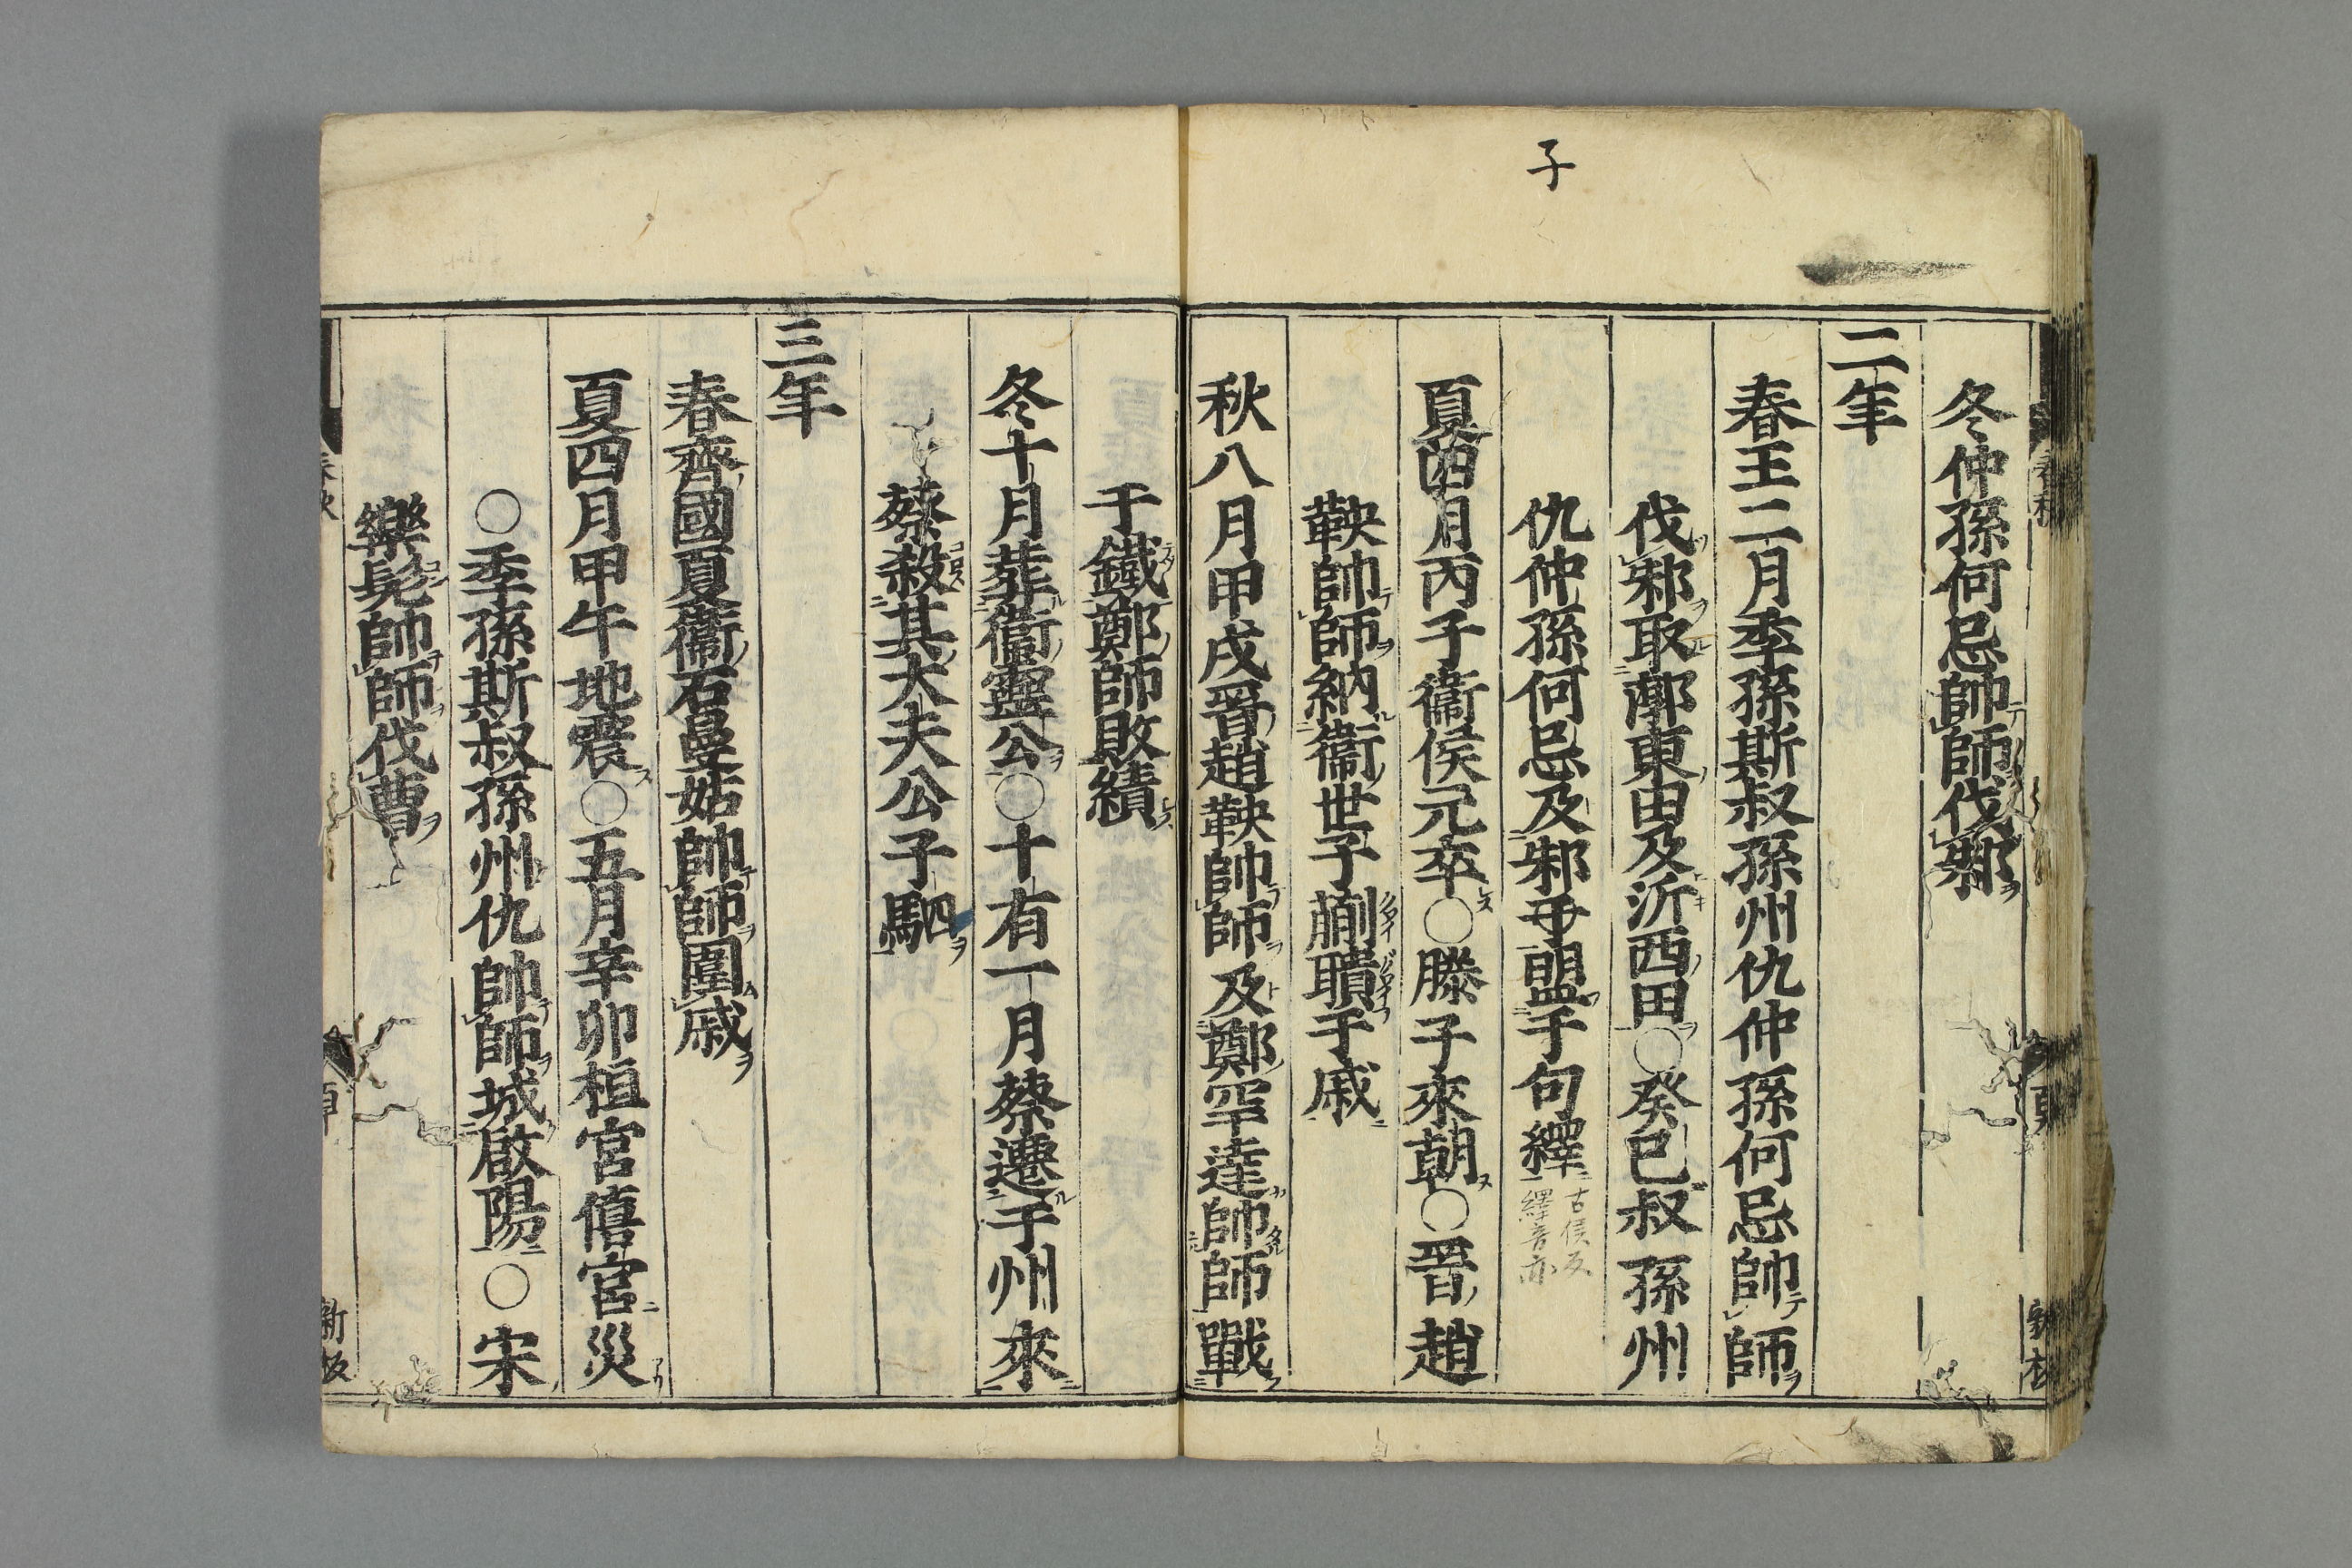 子
冬仲孫何忌帥師伐邾
二年
春王二月季孫斯叔孫州仇仲孫何忌帥師
伐邾取漷東田及沂西田○癸巳叔孫州
仇仲孫何忌及邾子盟于句繹
古侯反
繹音亦
夏四月丙子衞侯元卒○滕子來朝○晋趙
鞅帥師納衞世子蒯聵于戚
秋八月甲戌晋趙鞅帥師及鄭罕達帥師戰
于鐵鄭師敗績
冬十月葬衞靈公○十有一月蔡遷于州來
蔡殺其大夫公子駟
三年
春齊國夏衞石曼姑帥師圍戚
夏四月甲午地震○五月辛卯桓宮僖宮災
○季孫斯叔孫州仇帥師城啟陽○宋
樂髡帥師伐曹
春秋
新板